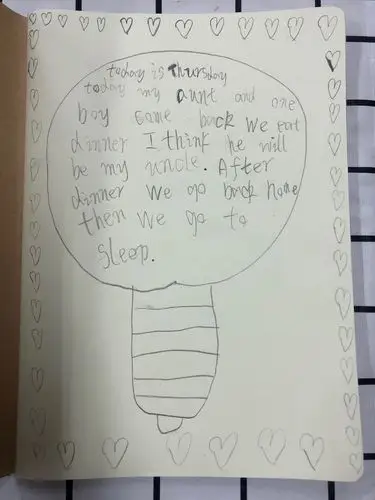 today is Thursday
today my aunt and one
boy came back We eat
dinner I think he will
be my uncle. After
dinner We go back home
then We go to
sleep.